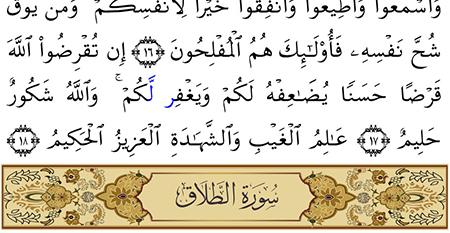 وَٱسْمَعُوا۟ وَأَطِيعُوا۟ وَأَنفِقُوا۟ خَيْرًا لِّأَنفُسِكُمْ ۗ وَمَن يُوقَ
شُحَّ نَفْسِهِۦ فَأُو۟لَـٰٓئِكَ هُمُ ٱلْمُفْلِحُونَ ﴿١٦﴾ إِن تُقْرِضُوا۟ ٱللَّهَ
قَرْضًا حَسَنًا يُضَـٰعِفْهُ لَكُمْ وَيَغْفِر لَّكُمْ ۚ وَٱللَّهُ شَكُورٌ
حَلِيمٌ ﴿١٧﴾ عَـٰلِمُ ٱلْغَيْبِ وَٱلشَّهَـٰدَةِ ٱلْعَزِيزُ ٱلْحَكِيمُ ﴿١٨﴾
سُورَةُ ٱلطَّلَاقِ